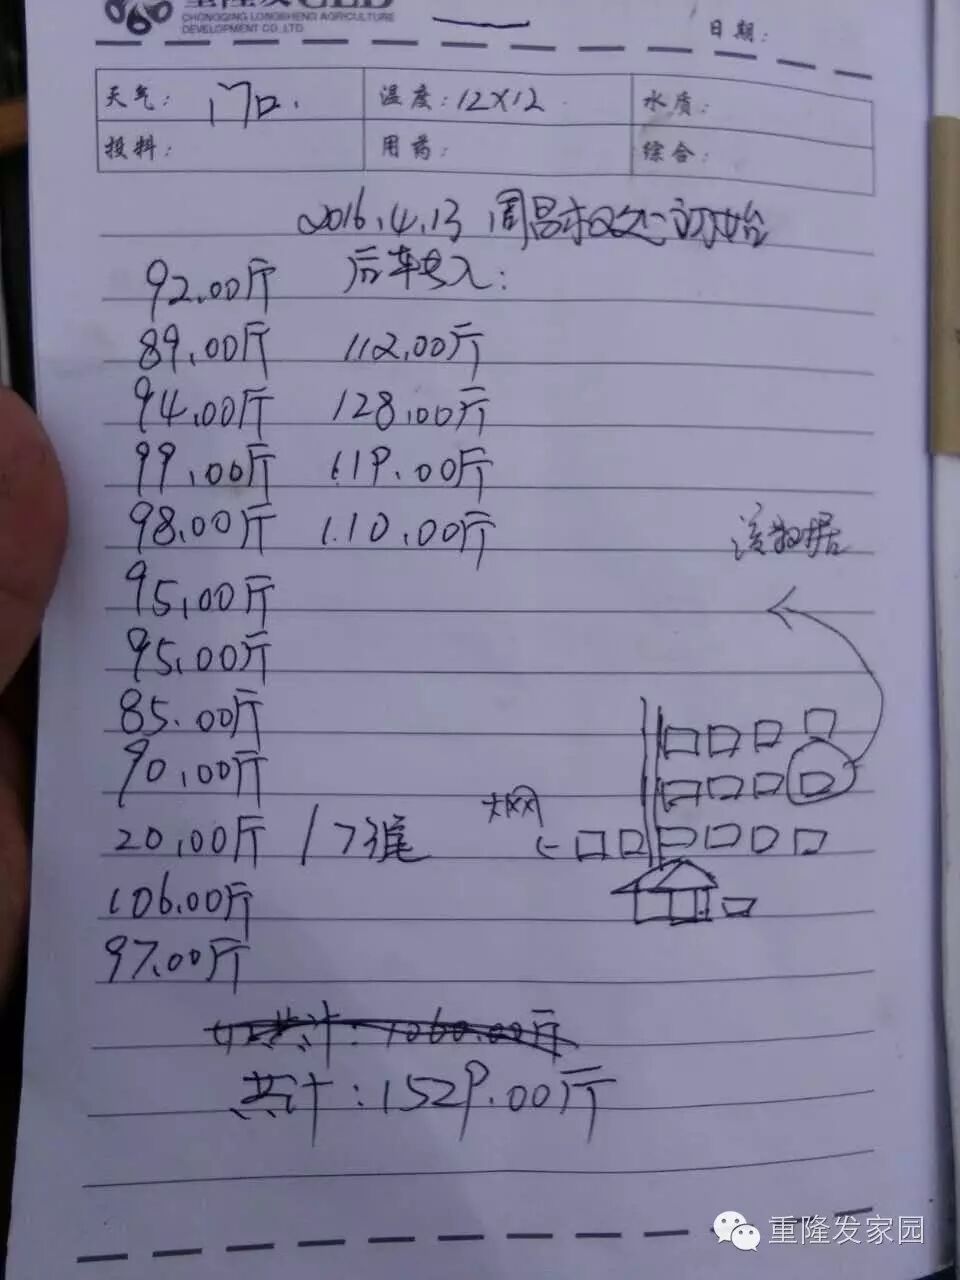 重隆发CLD
CHONGQING LONGSHENG AGRICULTURE
DEVELOPMENT CO.,LTD
日期:
天气: 门口. 温度: 12×12 水质:
投料: 用药: 综合:
2016.4.13 周昌树处 初始
92.00斤 后来转入:
89.00斤 112.00斤
94.00斤 128.00斤
99.00斤 119.00斤
98.00斤 110.00斤
该数据
95.00斤
95.00斤
85.00斤
90.00斤
20.00斤 17尾
大网
106.00斤
97.00斤
共计: 1060.00斤
共计: 1529.00斤
重隆发家园